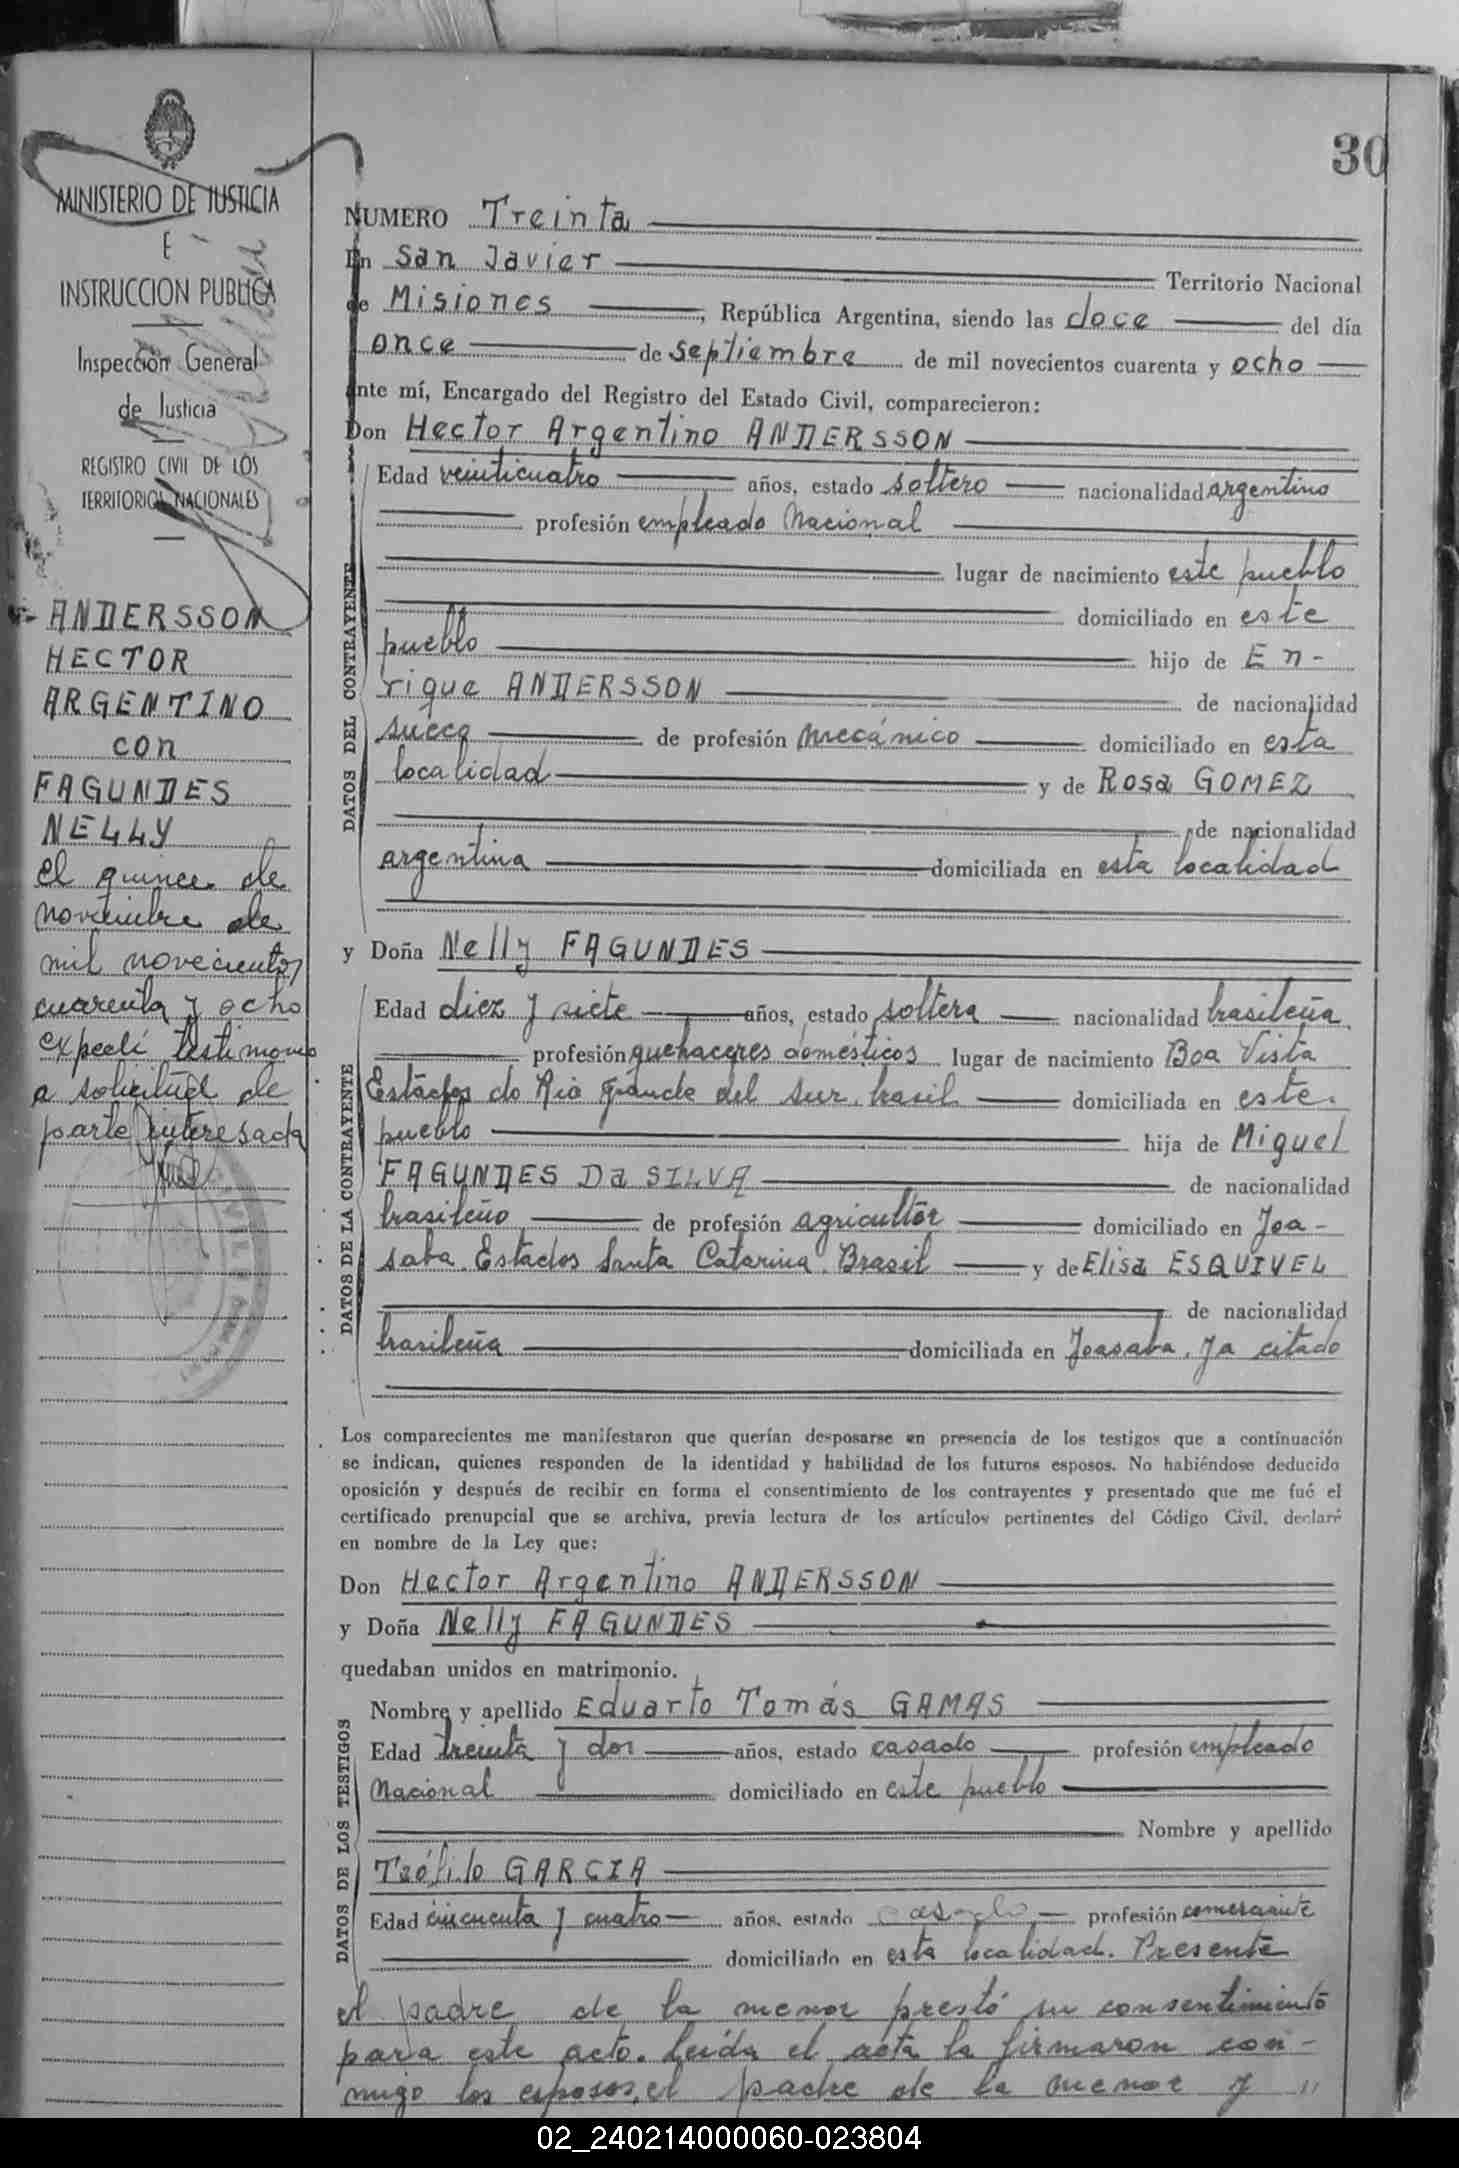 30
MINISTERIO DE JUSTICIA
E
INSTRUCCION PUBLICA
Inspección General
de Justicia
REGISTRO CIVIL DE LOS
TERRITORIOS NACIONALES
ANDERSSON
HECTOR
ARGENTINO
con
FAGUNDES
NELLY
el quince de
noviembre de
mil novecientos
cuarenta y ocho
expedí testimonio
a solicitud de
parte interesada
NUMERO Treinta
En San Javier Territorio Nacional
de Misiones, República Argentina, siendo las doce del día
once de septiembre de mil novecientos cuarenta y ocho
ante mí, Encargado del Registro del Estado Civil, comparecieron:
Don Hector Argentino ANDERSSON
DATOS DEL CONTRAYENTE
Edad veinticuatro años, estado soltero nacionalidad argentino
profesión empleado Nacional
lugar de nacimiento este pueblo
domiciliado en este
pueblo hijo de En-
rique ANDERSSON de nacionalidad
sueco de profesión mecánico domiciliado en esta
localidad y de Rosa GOMEZ
de nacionalidad
argentina domiciliada en esta localidad
y Doña Nelly FAGUNDES
DATOS DE LA CONTRAYENTE
Edad diez y siete años, estado soltera nacionalidad brasileña
profesión quehaceres domésticos lugar de nacimiento Boa Vista
Estados do Rio Grande del Sur. brasil domiciliada en este.
pueblo hija de Miguel
FAGUNDES Da SILVA de nacionalidad
brasileño de profesión agricultor domiciliado en Joa-
saba. Estados Santa Catarina. Brasil y de Elisa ESQUIVEL
de nacionalidad
brasileña domiciliada en Joasaba, ya citado
Los comparecientes me manifestaron que querían desposarse en presencia de los testigos que a continuación
se indican, quienes responden de la identidad y habilidad de los futuros esposos. No habiéndose deducido
oposición y después de recibir en forma el consentimiento de los contrayentes y presentado que me fué el
certificado prenupcial que se archiva, previa lectura de los artículos pertinentes del Código Civil, declaré
en nombre de la Ley que:
Don Hector Argentino ANDERSSON
y Doña Nelly FAGUNDES
quedaban unidos en matrimonio.
DATOS DE LOS TESTIGOS
Nombre y apellido Eduarto Tomás GAMAS
Edad treinta y dos años, estado casado profesión empleado
Nacional domiciliado en este pueblo
Nombre y apellido
Teófilo GARCIA
Edad cincuenta y cuatro años, estado casado profesión comerciante
domiciliado en esta localidad. Presente
el padre de la menor prestó su consentimiento
para este acto. Leída el acta la firmaron con-
migo los esposos, el padre de la menor y "
02_240214000060-023804